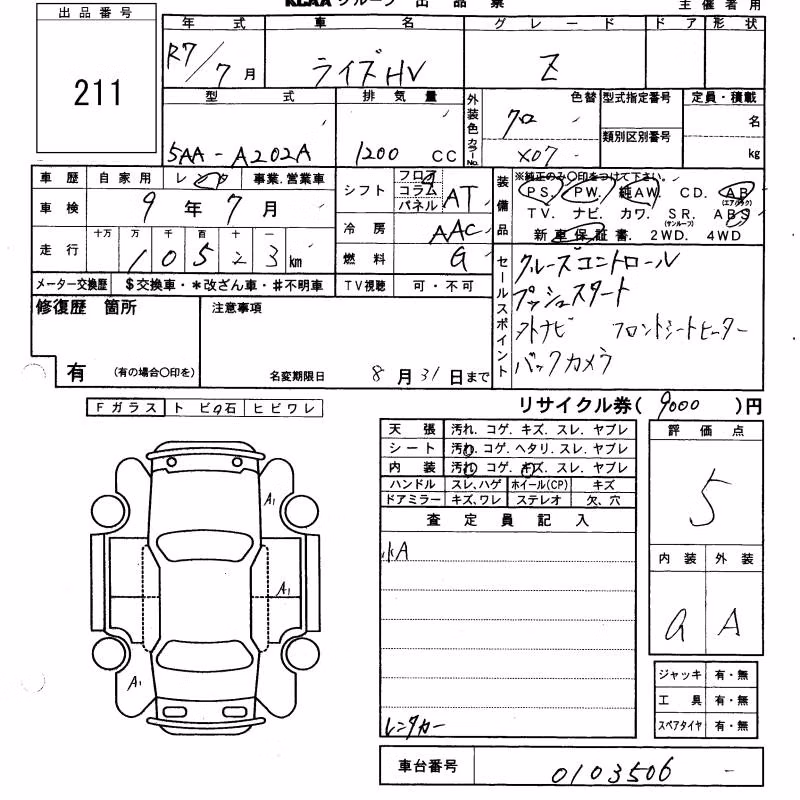 KCAA グループ 出 品 票
主 催 者 用
出 品 番 号
211
年 式
車 名
グ レ ー ド
ド ア
形 状
R7/7月
ライズHV
Z
型 式
排 気 量
外装色
カラーNo.
色替
型式指定番号
定員・積載
5AA-A202A
1200 CC
クロ
X07
類別区別番号
名
kg
車 歴
自 家 用
レンタ
事業.営業車
シフト
フロア
コラム
パネル
AT
車 検
9 年 7 月
冷 房
AAC
走 行
十万 万 千 百 十 一
10523 km
燃 料
G
装備品
※純正のみ〇印をつけて下さい。
PS. PW. 純AW. CD. AB
(エアバック)
TV. ナビ. カワ. SR. ABS
(サンルーフ)
新 車 保 証 書. 2WD. 4WD
メーター交換歴
$交換車・*改ざん車・#不明車
TV視聴
可・不可
セールスポイント
クルーズコントロール
プッシュスタート
外ナビ フロントシートヒーター
バックカメラ
修復歴 箇所
注意事項
有 (有の場合〇印を)
名変期限日 8 月 31 日まで
リサイクル券( 9000 )円
F ガ ラ ス
ト ビ 石
ヒ ビ ワ レ
天 張 汚れ. コゲ. キズ. スレ. ヤブレ
シート 汚れ. コゲ. ヘタリ. スレ. ヤブレ
内 装 汚れ. コゲ. キズ. スレ. ヤブレ
ハンドル スレ,ハゲ ホイール(CP) キズ
ドアミラー キズ,ワレ ステレオ 欠、穴
評 価 点
5
査 定 員 記 入
小A
レンタカー
内 装
外 装
a
A
A1
A1
A1
ジャッキ 有・無
工 具 有・無
スペアタイヤ 有・無
車台番号
0103506 -